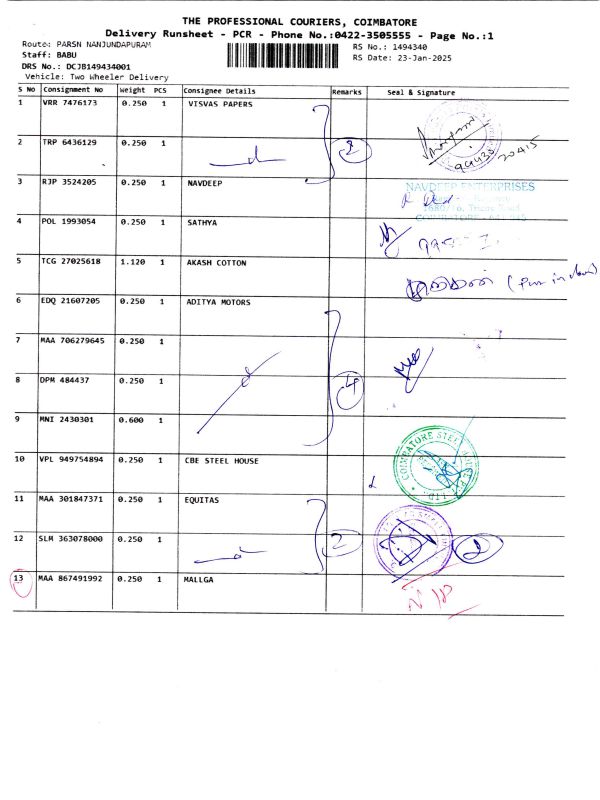 THE PROFESSIONAL COURIERS, COIMBATORE
Delivery Runsheet - PCR - Phone No.:0422-3505555 - Page No.:1
Route: PARSN NANJUNDAPURAM
RS No.: 1494340
Staff: BABU
RS Date: 23-Jan-2025
DRS No.: DCJB149434001
Vehicle: Two Wheeler Delivery
S No Consignment No Weight PCS Consignee Details Remarks Seal & Signature
1 VRR 7476173 0.250 1 VISVAS PAPERS
2 TRP 6436129 0.250 1 2
3 RJP 3524205 0.250 1 NAVDEEP NAVDEEP ENTERPRISES
4 POL 1993054 0.250 1 SATHYA
5 TCG 27025618 1.120 1 AKASH COTTON
6 EDQ 21607205 0.250 1 ADITYA MOTORS
7 MAA 706279645 0.250 1
8 DPM 484437 0.250 1 4
9 MNI 2430301 0.600 1
10 VPL 949754894 0.250 1 CBE STEEL HOUSE
11 MAA 301847371 0.250 1 EQUITAS
12 SLM 363078000 0.250 1 2 2
13 MAA 867491992 0.250 1 MALLGA